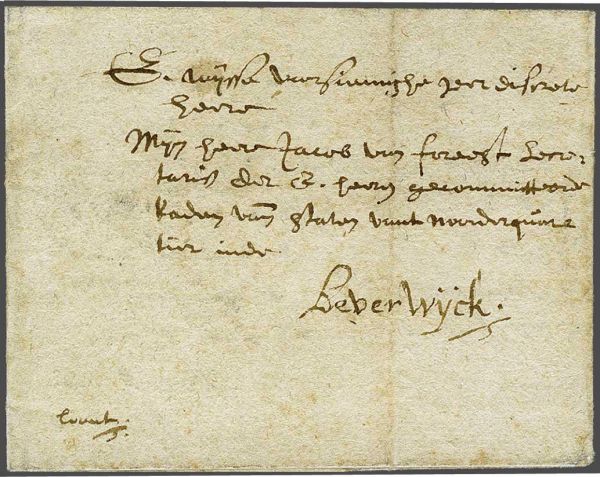 E. wijsse voorsiennighe zeer discrete
heere
Mijn heere Jacob van foreest Secre-
taris der E. heeren gecommitteerde
Raden vanden Staten vant Noorderquar-
tier inde
BeverWijck.